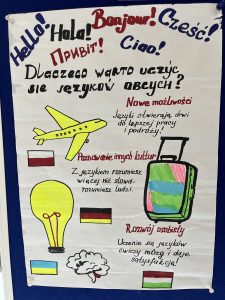 Hello! Hola! Bonjour! Cześć!
Привіт! Ciao!
Dlaczego warto uczyć
się języków obcych?
Nowe możliwości
Języki otwierają drzwi
do lepszej pracy
i podróży!
Poznawanie innych kultur
Z językiem rozumiesz
więcej niż słowa-
rozumiesz ludzi.
Rozwój osobisty
Uczenie się języków
ćwiczy mózg i daje
satysfakcję!